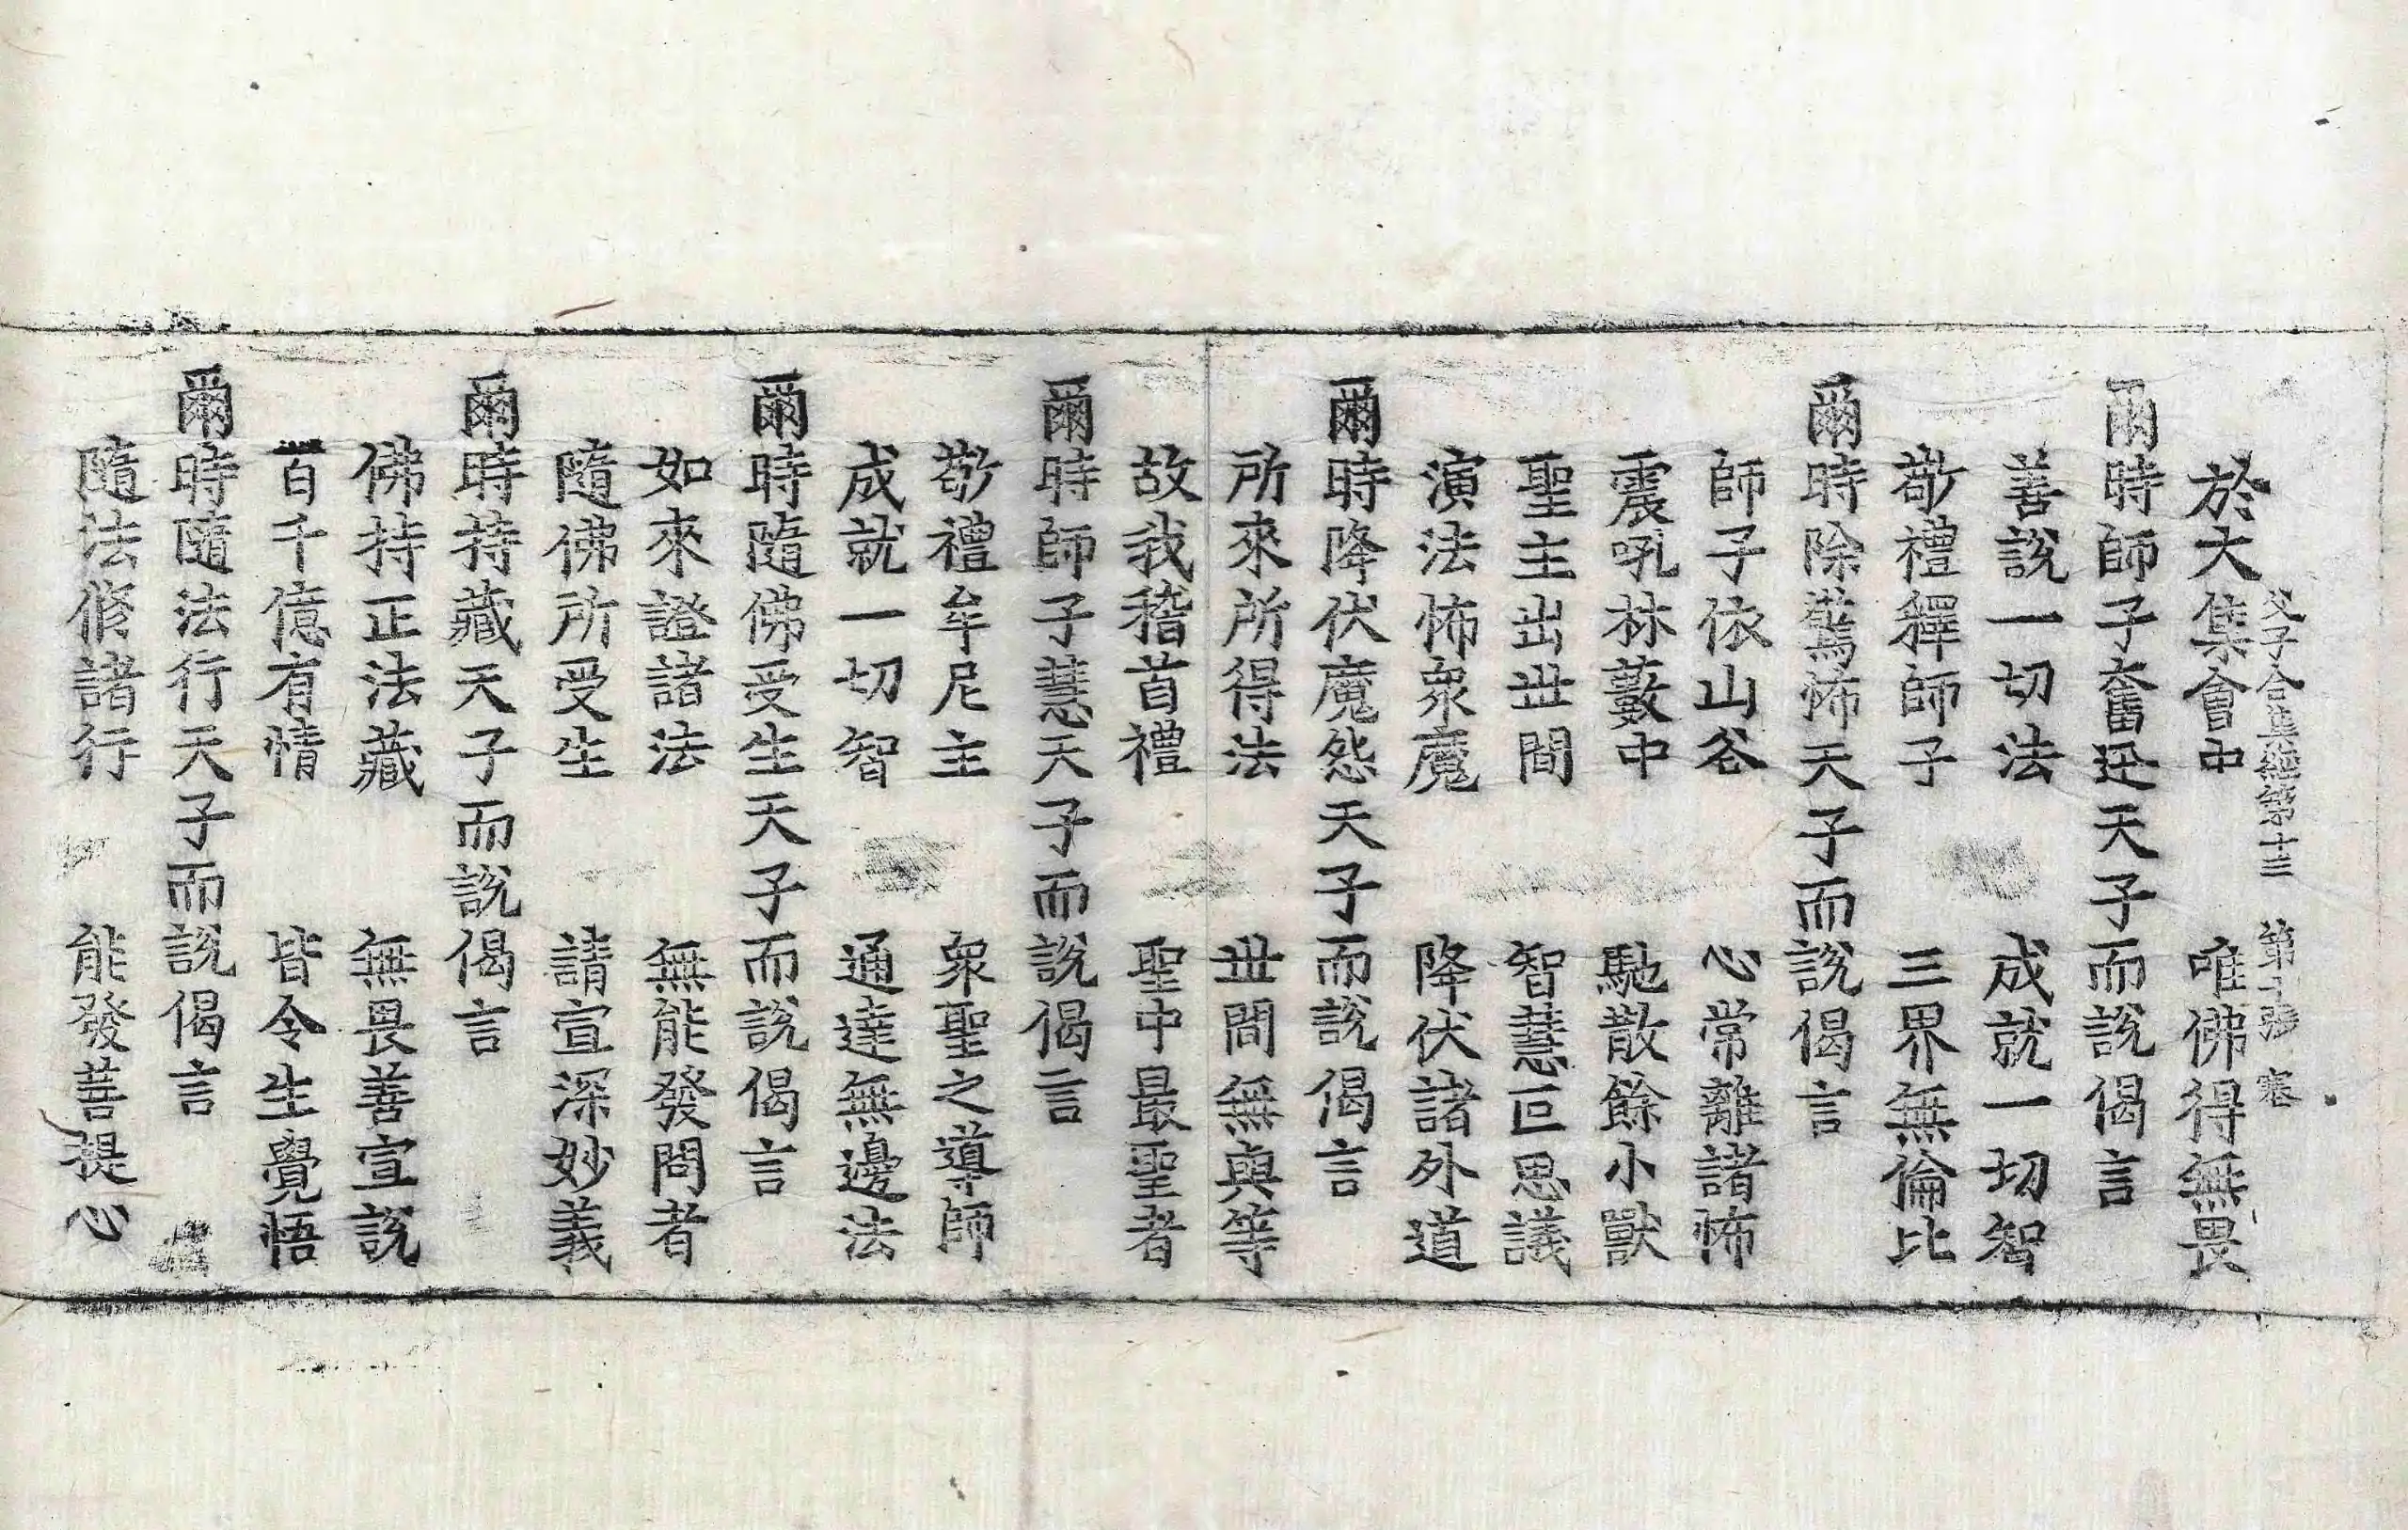 父子合集經第十三 第 張 寒
於大集會中 唯佛得無畏
爾時師子奮迅天子而說偈言
善說一切法 成就一切智
敬禮釋師子 三界無倫比
爾時除驚怖天子而說偈言
師子依山谷 心常離諸怖
震吼林藪中 馳散餘小獸
聖主出世間 智慧叵思議
演法怖衆魔 降伏諸外道
爾時降伏魔怨天子而說偈言
所來所得法 世間無與等
故我稽首禮 聖中最聖者
爾時師子慧天子而說偈言
敬禮牟尼主 衆聖之導師
成就一切智 通達無邊法
爾時隨佛受生天子而說偈言
如來證諸法 無能發問者
隨佛所受生 請宣深妙義
爾時持藏天子而說偈言
佛持正法藏 無畏善宣說
百千億有情 皆令生覺悟
爾時隨法行天子而說偈言
隨法修諸行 能發菩提心